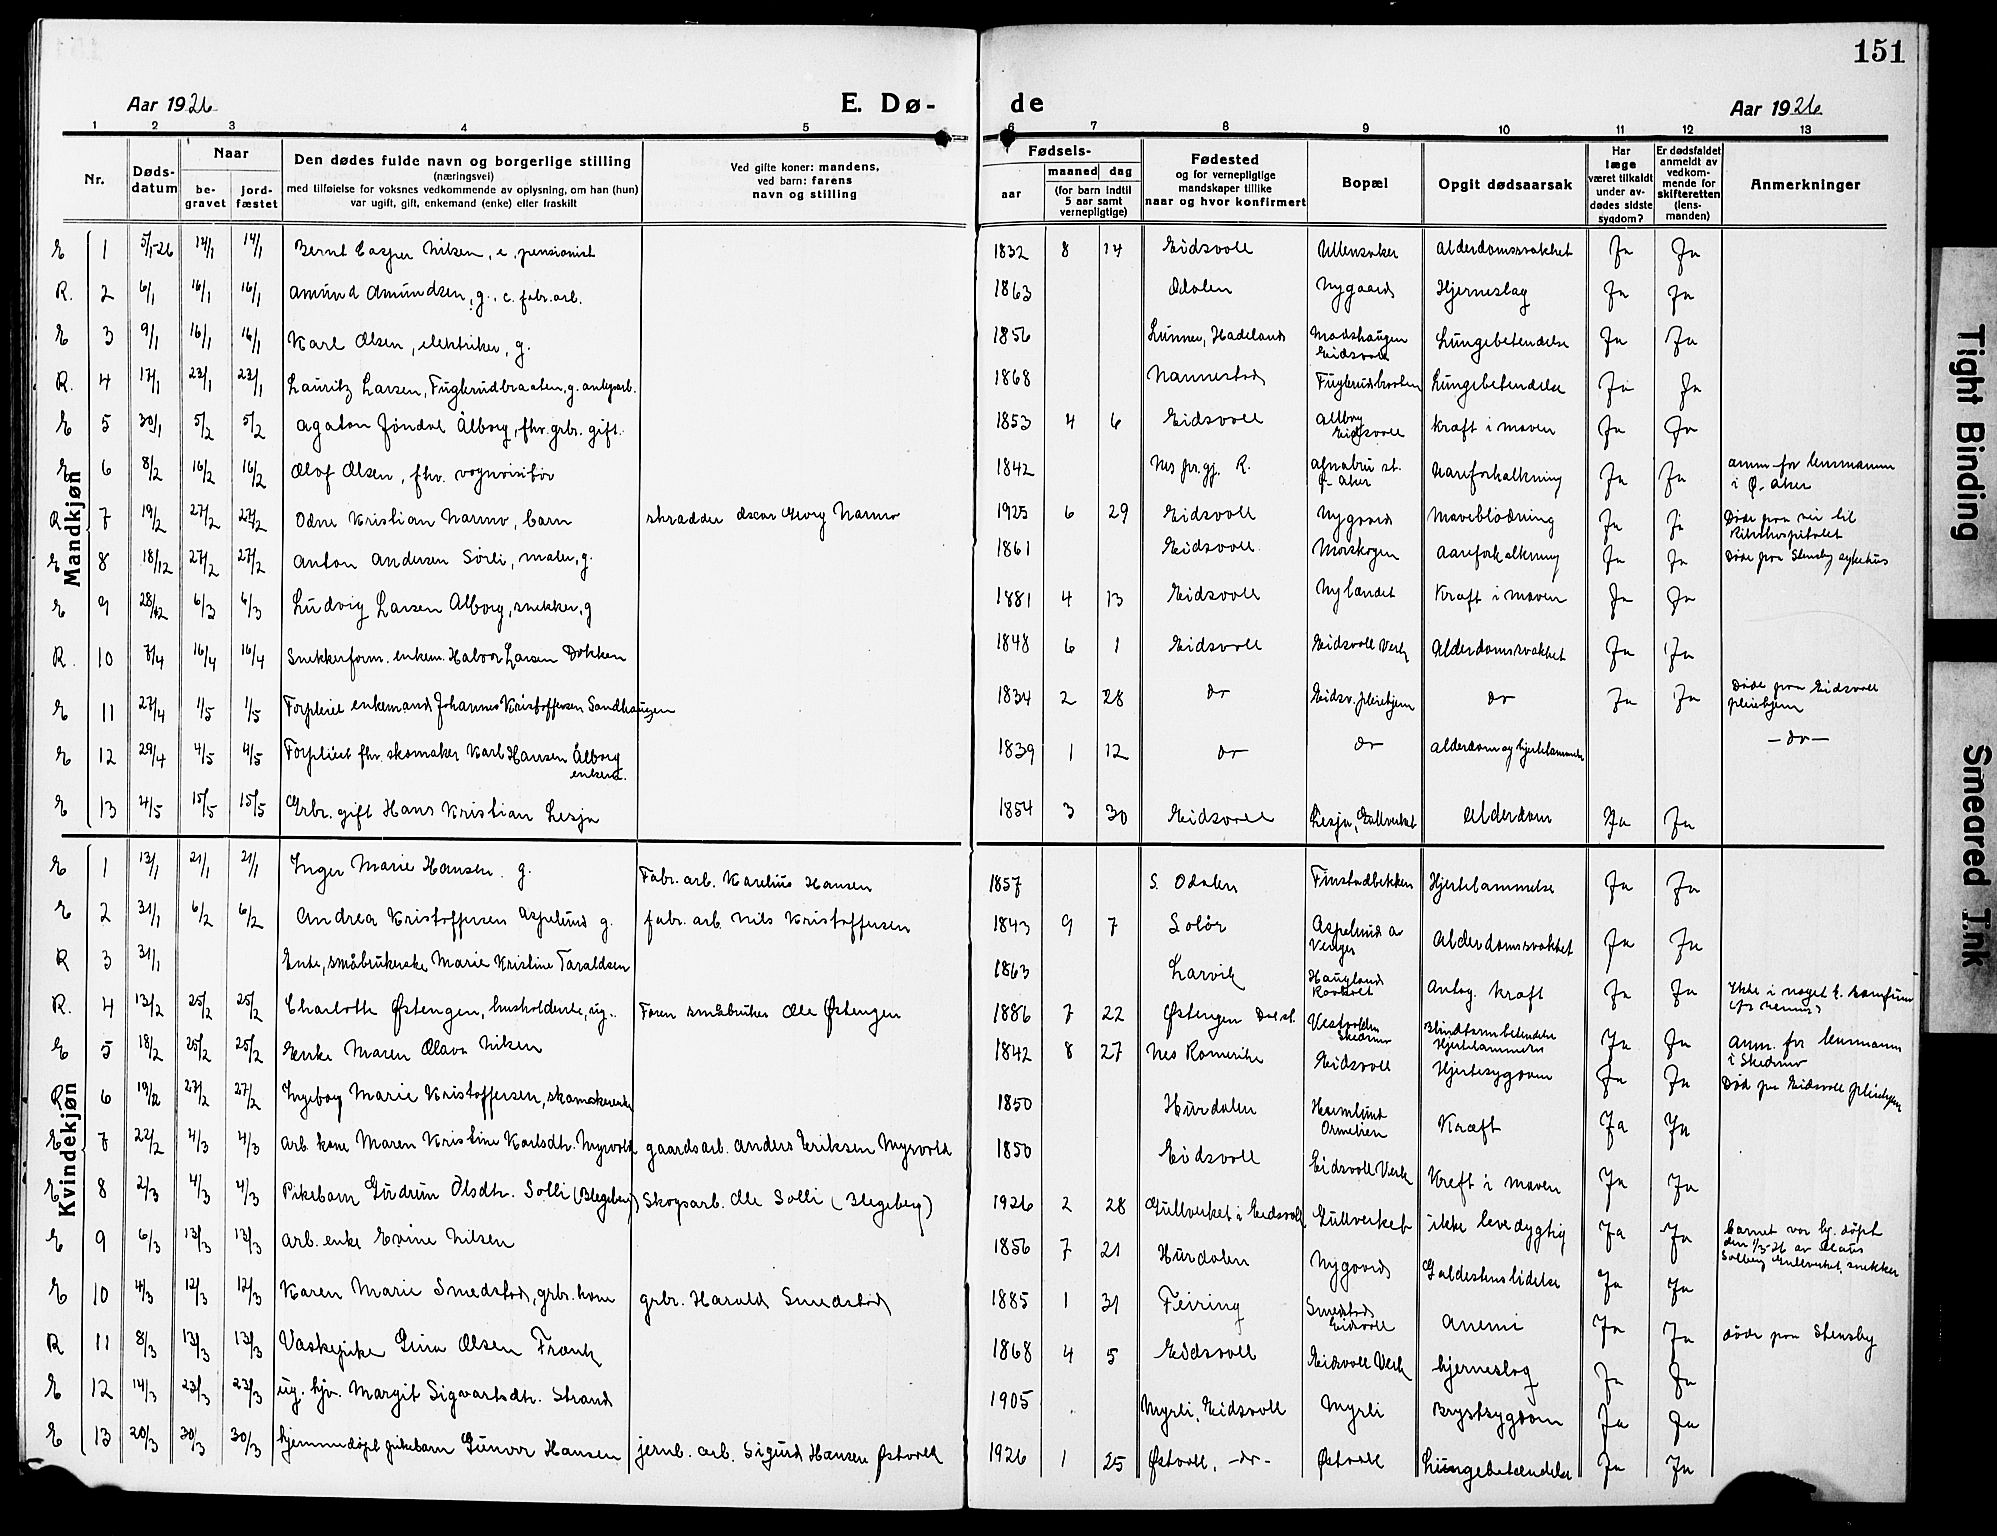 151
Aar 1926
E. Dø-
de
Aar 1926
1 2 3 4 5 6 7 8 9 10 11 12 13
Nr.
Døds-
datum
Naar
be-
gravet
jord-
fæstet
Den dødes fulde navn og borgerlige stilling
(næringsvei)
med tilføielse for voksnes vedkommende av oplysning, om han (hun)
var ugift, gift, enkemand (enke) eller fraskilt
Ved gifte koner: mandens,
ved barn: farens
navn og stilling
Fødsels-
aar
maaned dag
(for barn indtil
5 aar samt
vernepligtige)
Fødested
og for vernepligtige
mandskaper tillike
naar og hvor konfirmert
Bopæl
Opgit dødsaarsak
Har
læge
været tilkaldt
under av-
dødes sidste
sygdom?
Er dødsfaldet
anmeldt av
vedkom-
mende for
skifteretten
(lens-
manden)
Anmerkninger
Mandkjøn
E 1 5/1-26 14/1 14/1 Bernt Casper Nilsen, e, pensionist 1832 8 14 Eidsvoll Ullensaker Alderdomssvakhet Ja Ja
R. 2 6/1 16/1 16/1 Amund Amundsen, g., e. fabr.arb. 1863 Odalen Nygaard Hjerneslag Ja Ja
E 3 9/1 16/1 16/1 Karl Olsen, elektriker, g. 1856 Lunner, Hadeland Madshaugen Eidsvoll Lungebetendelse Ja Ja
R. 4 17/1 23/1 23/1 Lauritz Larsen, Fuglerudbraaten, g. anlegsarb. 1868 Nannestad Fuglerudbraaten Lungebetendelse Ja Ja
E 5 30/1 5/2 5/2 Agaton Jøndal Ålborg, fhv. grbr. gift. 1853 4 6 Eidsvoll Ålborg Eidsvoll Kræft i maven Ja Ja
E 6 8/2 16/2 16/2 Olof Olsen, fhv. vognvisitør 1842 Nes pr.gj. R. Alnabru st. Ø. Aker Aareforkalkning Ja Ja anm. for lensmannen
i Ø. Aker
R 7 19/2 27/2 27/2 Odne Kristian Narmo, barn skrædder Oscar Georg Narmo 1925 6 29 Eidsvoll Nygaard Maveblødning Ja Ja Døde paa vei til
Rikshospitalet
E 8 18/12 27/2 27/2 Anton Andersen Sørli, maler, g. 1861 Eidsvoll Morskogen Aareforkalkning Ja Ja Døde paa Stensby sykehus
E 9 28/2 6/3 6/3 Ludvig Larsen Ålborg, snekker, g 1881 4 13 Eidsvoll Nylandet Kræft i maven Ja Ja
R. 10 7/4 16/4 16/4 Snekkerform. enkem. Halvor Larsen Dokken 1848 6 1 Eidsvoll Eidsvoll Verk Alderdomssvakhet Ja Ja
E 11 27/4 1/5 1/5 Forpleiet enkemand Johannes Kristoffersen Sandhaugen 1834 2 28 do Eidsv. pleiehjem do Ja Ja Døde paa Eidsvoll
pleiehjem
E 12 29/4 4/5 4/5 Forpleiet fhv. skomaker Karl Hansen Ålborg
enkem. 1839 1 12 do do Alderdom og hjertelammelse -do-
E 13 4/5 15/5 15/5 Grbr. gift Hans Kristian Lesja 1854 3 30 Eidsvoll Lesja, Gullverket Alderdom Ja Ja
Kvindekjøn
E 1 13/1 21/1 21/1 Inger Marie Hansen. g. Fabr. arb. Karelius Hansen 1857 S. Odalen Finstadbekken Hjertelammelse Ja Ja
E 2 31/1 6/2 6/2 Andrea Kristoffersen Aspelund g. fabr. arb. Nils Kristoffersen 1843 9 7 Solør Aspelund a Venger Alderdomssvakhet Ja Ja
R 3 31/1 Enke, småbrukerske Marie Kristine Taraldsen 1863 Larvik Haugland Antag. kræft Ja Ja
R. 4 13/2 25/2 25/2 Charlotte Østengen, husholderske, ug. Faren småbruker Ole Østengen 1886 7 22 Østengen Dal st. Vestvolden Skedsmo Blindtarmbetendelse Hjertelammelse Ja Ja anm. for lensmannen
i Skedsmo
E 5 18/2 25/2 25/2 Enke Maren Olava Nilsen 1842 8 27 Nes Romerike Eidsvoll Hjertesygdom Ja Ja Død paa Eidsvoll pleiehjem
R 6 19/2 27/2 27/2 Ingeborg Marie Kristoffersen, skomakerenke 1850 Hurdalen Ormelien Kræft Ja Ja
E 7 22/2 4/3 4/3 Arb. kone Maren Kristine Karlsdtr. Myrvold gaardsarb. Anders Eriksen Myrvold 1850 Eidsvoll Eidsvoll Verk Kræft i maven Ja Ja
E 8 2/3 4/3 4/3 Pikebarn Gudrun Olsdtr. Solli (Blegeberg) Skogsarb. Ole Solli (Blegeberg) 1926 2 28 Gullverket i Eidsvoll Gullverket ikke levedygtig Ja Ja Barnet var hj. døpt
den 1/3-26 av Olaus
Solberg Gullverket, snekker
E 9 6/3 13/3 13/3 Arb. enke Evine Nilsen 1856 7 21 Hurdalen Nygaard Galdestenslidelse Ja Ja
E 10 4/3 12/3 12/3 Karen Marie Smedstad, grbr. kone grbr. Harald Smedstad 1885 1 31 Feiring Smedstad Eidsvoll Anemi Ja Ja døde paa Stensby
R 11 8/3 13/3 13/3 Vaskepike Gina Olsen Frank 1868 4 5 Eidsvoll Eidsvoll Verk hjerneslag Ja Ja
E 12 14/3 23/3 23/3 ug. hjv. Margit Sigvartsdtr. Strand 1905 Myrli, Eidsvoll Myrli Brystsygdom Ja Ja
E 13 20/3 30/3 30/3 hjemmedøpt pikebarn Gunvor Hansen jernb. arb. Sigurd Hansen Østvold 1926 1 25 Østvoll, -do- Østvoll Lungebetændelse Ja Ja
Tight Binding
Smeared Ink